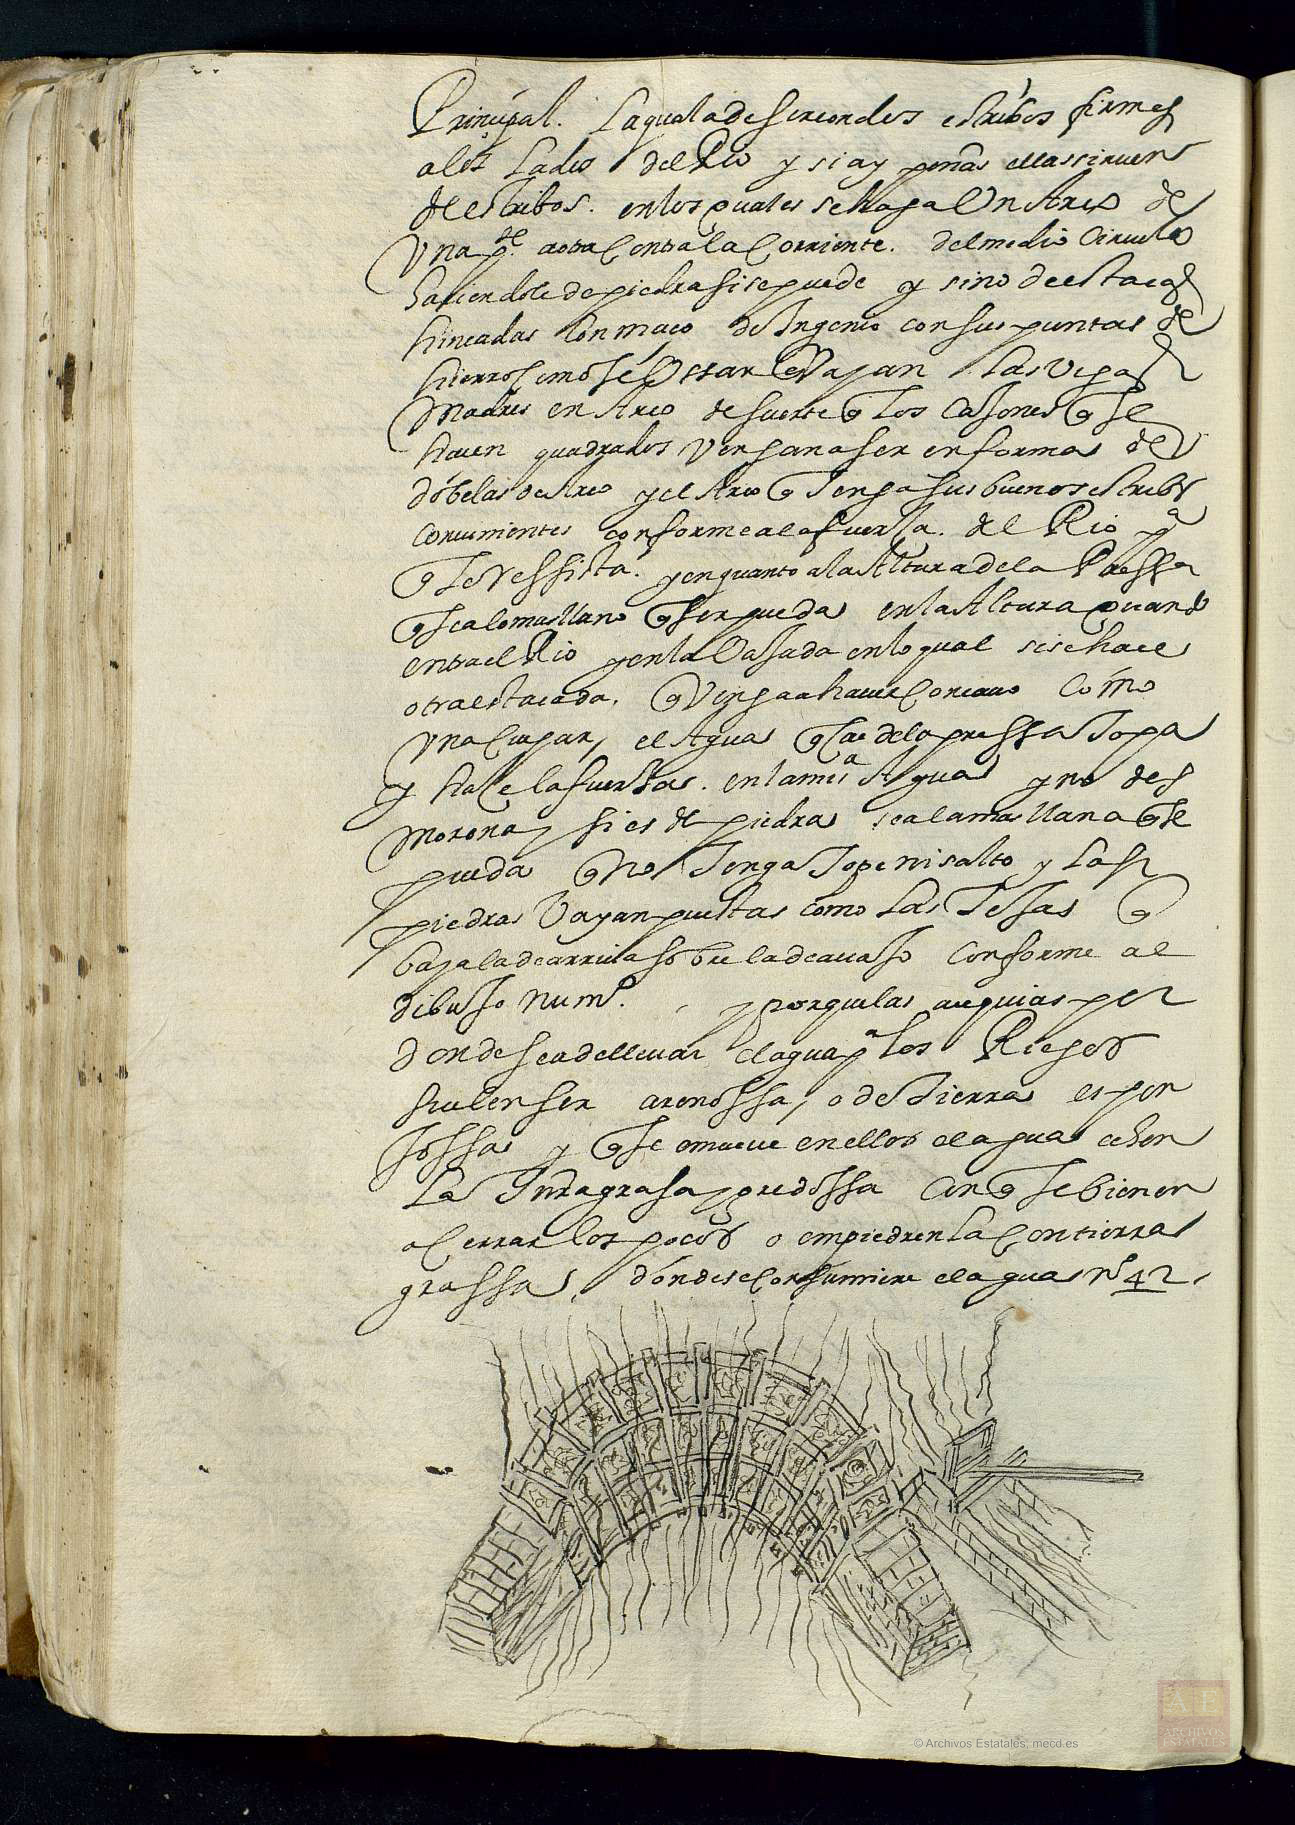 Principal. La qual a de ser con dos estribos firmes
a los Lados del Rio y si ay penas ellas sirven
de estribos. en los quales se haga Un Arco de
Una pte a otra contra la Corriente. del medio Circulo
haciendole de piedra si se puede y sino de estacas
hincadas con maço de Ingenio con sus puntas de
hierro como se Ussar Vayan las vigas
Madres en Arco de suerte q los Cajones q se
hacen quadrados vengan a ser en forma de
dobelas de Arco y el Arco q Tenga sus buenos estribos
convinientes conforme a la fuerça. del Rio pa
q le Ressista. y en quanto a la Altura de la Pressa
q sea lo mas llano q ser pueda en la Altura quando
entra el Rio y en la Vajada en lo qual si se hace
otra estacada. q Venga a hacer Concavo Cómo
Una Cuchar, el Agua q cae de la pressa Topa
y hace la fuerça. en la misma Agua y no des
morona, si es de piedra, sea la mas llana q se
pueda q No Tenga Tope ni salto y Las
piedras Vayan puestas como Las Tejas q
baja la de arriva sobre la de avajo Conforme al
dibujo Numo. , y porque las acequias por
donde se a de llevar el agua pa los Riegos
suelen ser arenossa, o de Tierra espon
jossa y q se embeve en ellos el agua echen
La Tierra grasa, gredossa Con q se bienen
a Cerrar los pocos o empiedrenla Con tierra
grassa, donde se Consumiere el agua No 42.
© Archivos Estatales, mecd.es
ARCHIVOS
ESTATALES